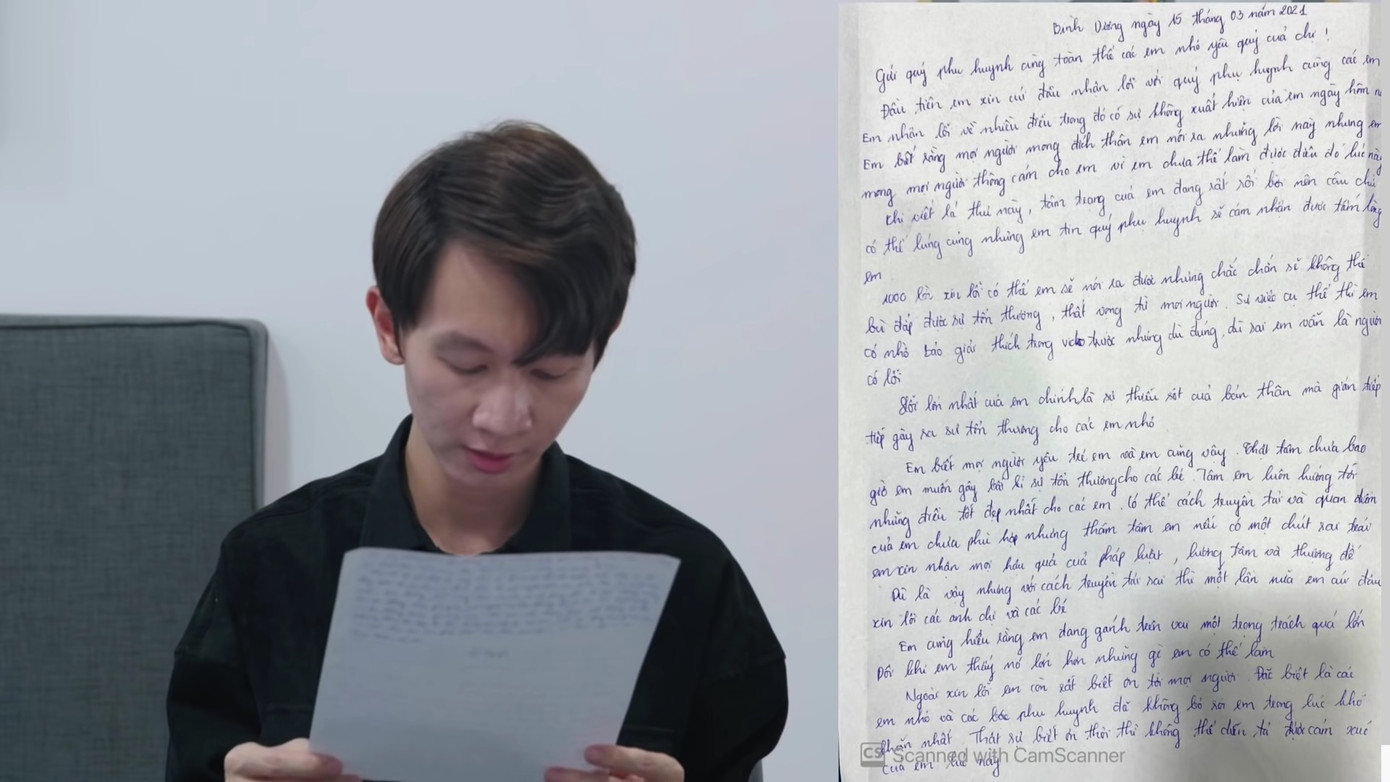 Bình Dương ngày 15 tháng 03 năm 2021
Gửi quý phụ huynh cùng toàn thể các em nhỏ yêu quý của chị !
Đầu tiên em xin cúi đầu nhận lỗi với quý phụ huynh cùng các em
Em nhận lỗi về nhiều điều trong đó có sự không xuất hiện của em ngày hôm
Em biết rằng mọi người mong đích thân em nói ra những lời này nhưng em
mong mọi người thông cảm cho em vì em chưa thể làm được điều đó lúc này
Khi viết lá thư này, tâm trạng của em đang rất rối bời nên câu chữ
có thể lủng củng nhưng em tin quý phụ huynh sẽ cảm nhận được tấm lòng
em
1000 lời xin lỗi có thể em sẽ nói ra được nhưng chắc chắn sẽ không thể
bù đắp được sự tổn thương, thất vọng từ mọi người. Sự việc cụ thể thì em
có nhờ bảo giải thích trong trước nhưng dù đúng, dù sai em vẫn là người
có lỗi
Lỗi lớn nhất của em chính là sự thiếu sót của bản thân mà gián tiếp
tiếp gây ra sự tổn thương cho các em nhỏ
Em biết mọi người yêu trẻ em và em cũng vậy. Thật tâm chưa bao
giờ em muốn gây bất kì sự tổn thương cho các bé. Tâm em luôn hướng tới
những điều tốt đẹp nhất cho các em. Có thể cách truyền tải và quan điểm
của em chưa phù hợp nhưng thâm tâm em nếu có một chút sai trái
em xin nhận mọi hậu quả của pháp luật, lương tâm và thượng đế
Dù là vậy nhưng với cách truyền tải sai thì một lần nữa em cúi đầu
xin lỗi các anh chị và các bé
Em cũng hiểu rằng em đang gánh trên vai một trọng trách quá lớn
Đôi khi em thấy nó lớn hơn những gì em có thể làm
Ngoài xin lỗi em còn rất biết ơn tới mọi người. Đặc biệt là các
em nhỏ và các bác phụ huynh đã không bỏ rơi em trong lúc khó
khăn nhất. Thật sự biết ơn thôi thì không thể diễn tả được cảm xúc
của em lúc này
CS Scanned with CamScanner